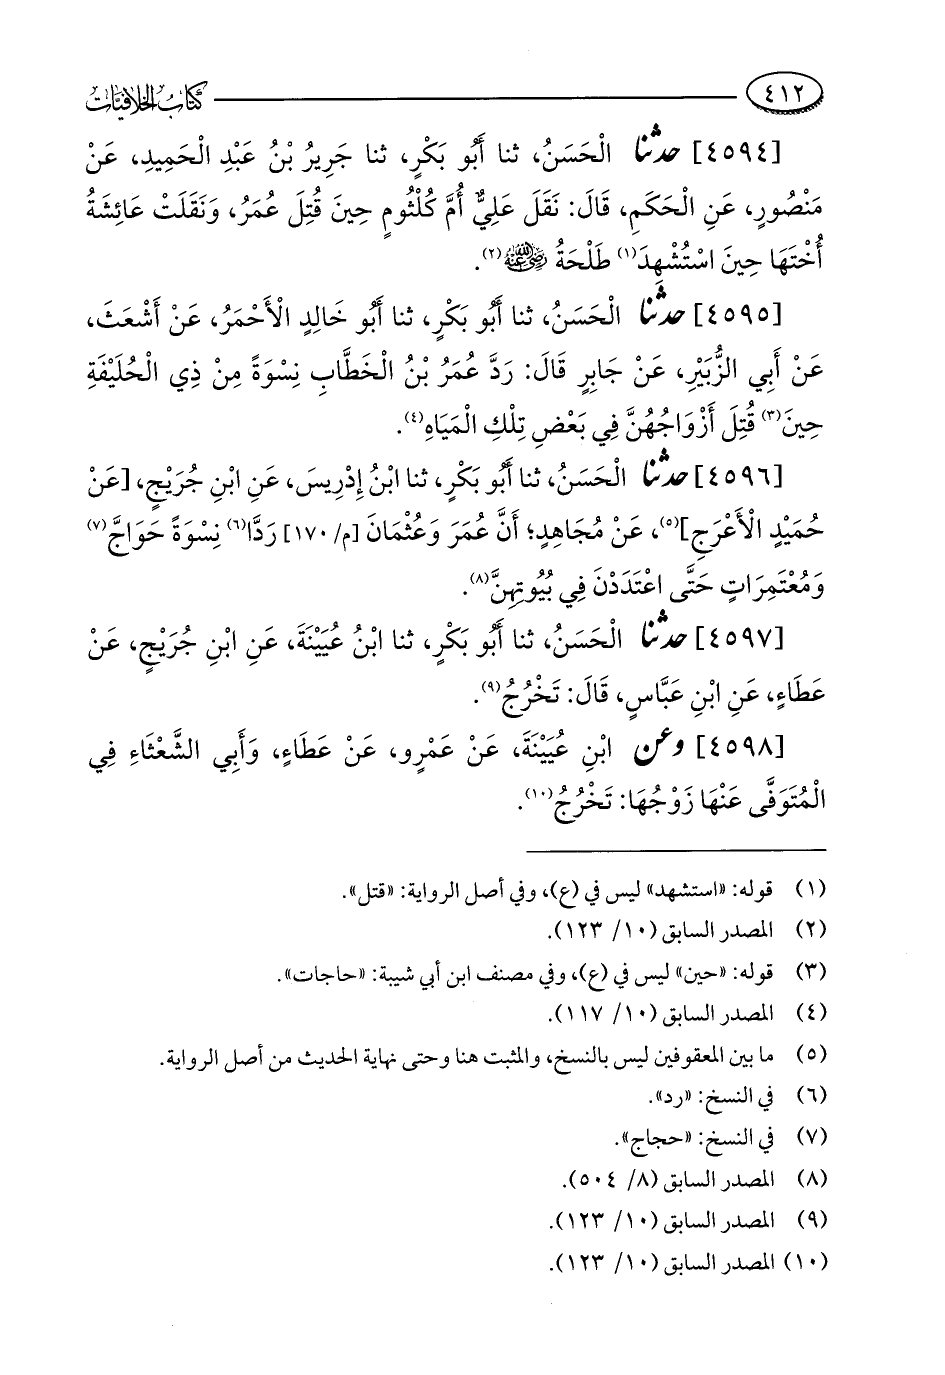 ٤١٢
كتاب الخلافيات
[٤٥٩٤] حدثنا الْحَسَنُ، ثنا أَبُو بَكْرٍ، ثنا جَرِيرُ بْنُ عَبْدِ الْحَمِيدِ، عَنْ
مَنْصُورٍ، عَنِ الْحَكَمِ، قَالَ: نَقَلَ عَلِيٌّ أُمَّ كُلْثُومٍ حِينَ قُتِلَ عُمَرُ، وَنَقَلَتْ عَائِشَةُ
أُخْتَهَا حِينَ اسْتُشْهِدَ(١) طَلْحَةُ رضي الله عنه(٢).
[٤٥٩٥] حدثنا الْحَسَنُ، ثنا أَبُو بَكْرٍ، ثنا أَبُو خَالِدٍ الْأَحْمَرُ، عَنْ أَشْعَثَ،
عَنْ أَبِي الزُّبَيْرِ، عَنْ جَابِرٍ قَالَ: رَدَّ عُمَرُ بْنُ الْخَطَّابِ نِسْوَةً مِنْ ذِي الْحُلَيْفَةِ
حِينَ(٣) قُتِلَ أَزْوَاجُهُنَّ فِي بَعْضِ تِلْكَ الْمَيَاهِ(٤).
[٤٥٩٦] حدثنا الْحَسَنُ، ثنا أَبُو بَكْرٍ، ثنا ابْنُ إِدْرِيسَ، عَنِ ابْنِ جُرَيْجٍ، [عَنْ
حُمَيْدٍ الْأَعْرَجِ](٥)، عَنْ مُجَاهِدٍ؛ أَنَّ عُمَرَ وَعُثْمَانَ [م/ ١٧٠] رَدَّا(٦) نِسْوَةً حَوَاجَّ(٧)
وَمُعْتَمِرَاتٍ حَتَّى اعْتَدَدْنَ فِي بُيُوتِهِنَّ(٨).
[٤٥٩٧] حدثنا الْحَسَنُ، ثنا أَبُو بَكْرٍ، ثنا ابْنُ عُيَيْنَةَ، عَنِ ابْنِ جُرَيْجٍ، عَنْ
عَطَاءٍ، عَنِ ابْنِ عَبَّاسٍ، قَالَ: تَخْرُجُ(٩).
[٤٥٩٨] وعن ابْنِ عُيَيْنَةَ، عَنْ عَمْرٍو، عَنْ عَطَاءٍ، وَأَبِي الشَّعْثَاءِ فِي
الْمُتَوَفَّى عَنْهَا زَوْجُهَا: تَخْرُجُ(١٠).
(١) قوله: «استشهد» ليس في (ع)، وفي أصل الرواية: «قتل».
(٢) المصدر السابق (١٠/ ١٢٣).
(٣) قوله: «حين» ليس في (ع)، وفي مصنف ابن أبي شيبة: «حاجات».
(٤) المصدر السابق (١٠/ ١١٧).
(٥) ما بين المعقوفين ليس بالنسخ، والمثبت هنا وحتى نهاية الحديث من أصل الرواية.
(٦) في النسخ: «رد».
(٧) في النسخ: «حجاج».
(٨) المصدر السابق (٨/ ٥٠٤).
(٩) المصدر السابق (١٠/ ١٢٣).
(١٠) المصدر السابق (١٠/ ١٢٣).